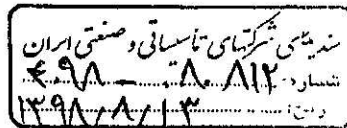 سندیکای شرکتهای تأسیساتی و صنعتی ایران
شماره: ۴۰۹۸ – ۰۸۰۸۱۲
تاریخ: ۱۳۹۸/۸/۱۳